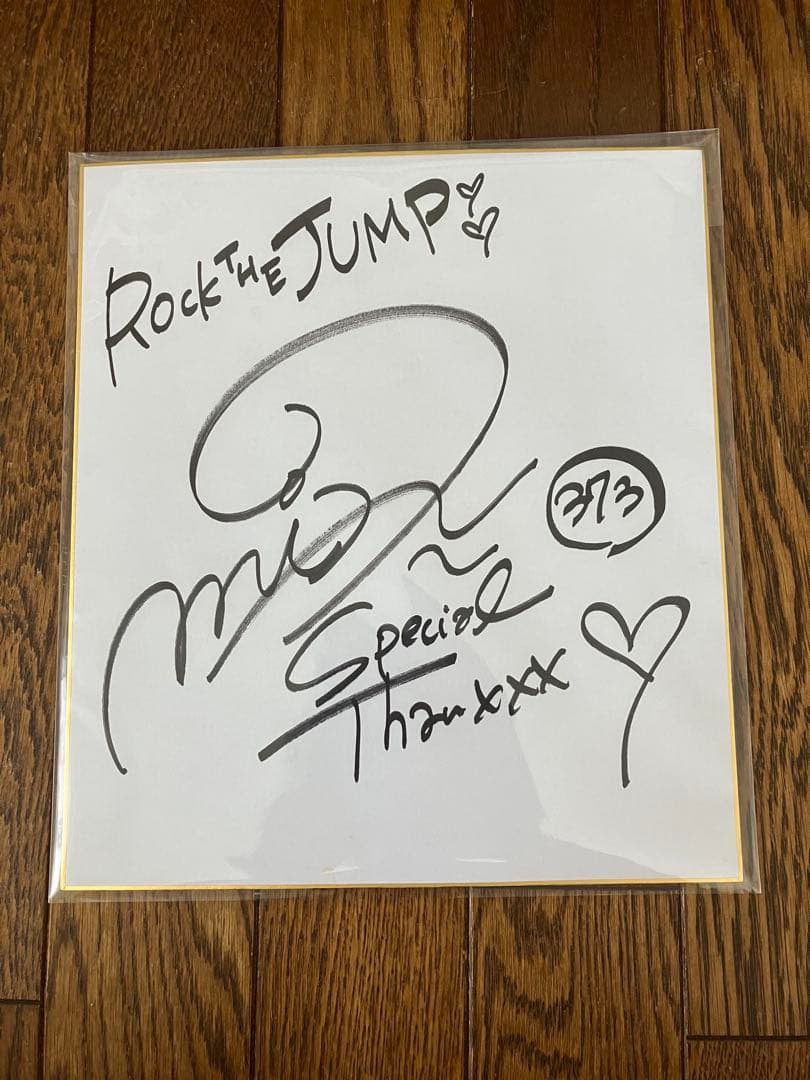 ROCK THE JUMP
373
Special
Thanxxx